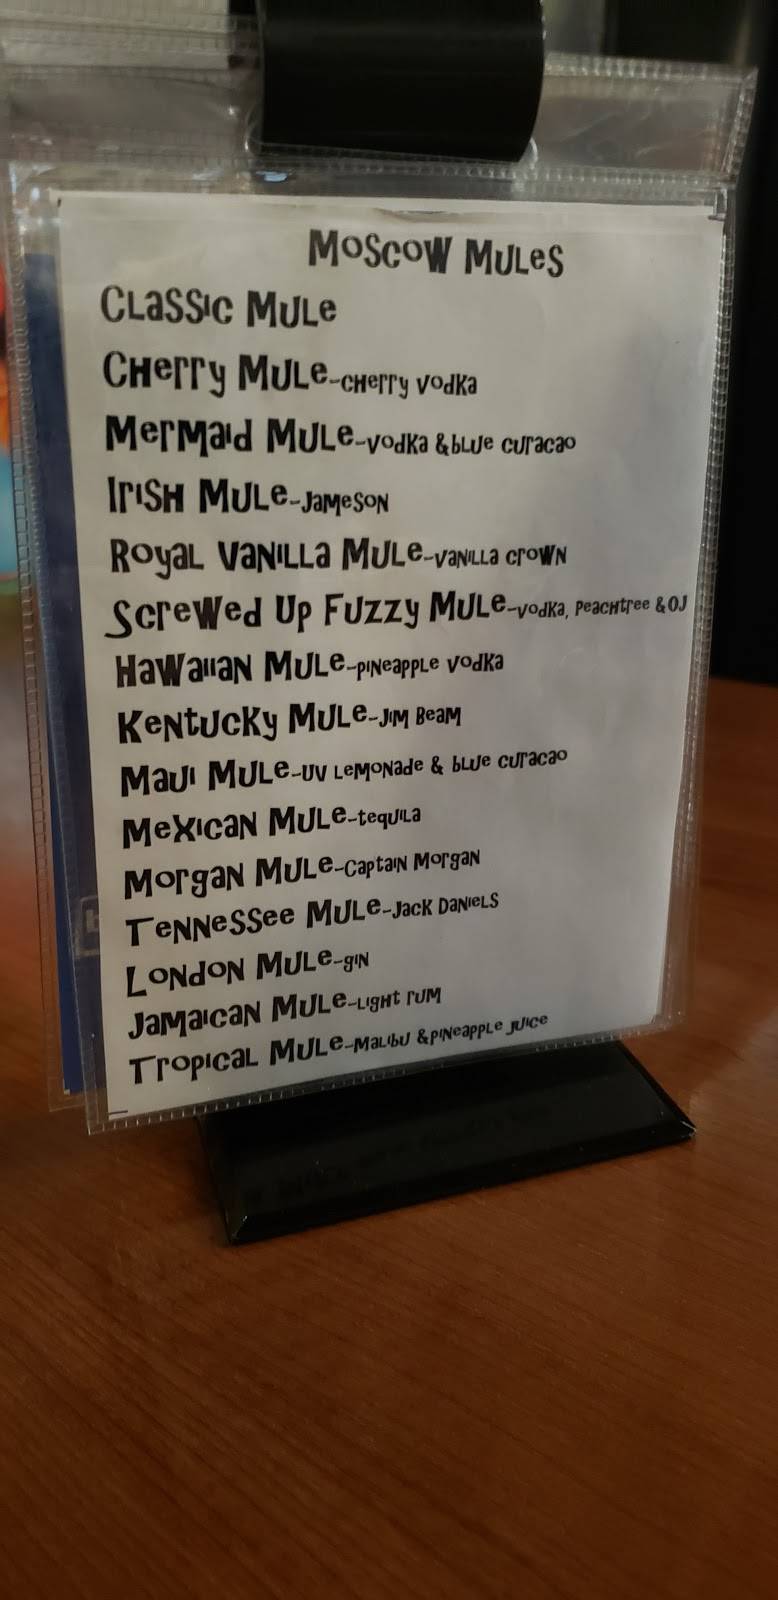 Moscow Mules
Classic Mule
Cherry Mule-Cherry Vodka
Mermaid Mule-Vodka & Blue Curacao
Irish Mule-Jameson
Royal Vanilla Mule-Vanilla Crown
Screwed Up Fuzzy Mule-Vodka, Peachtree & OJ
Hawaiian Mule-Pineapple Vodka
Kentucky Mule-Jim Beam
Maui Mule-UV Lemonade & Blue Curacao
Mexican Mule-Tequila
Morgan Mule-Captain Morgan
Tennessee Mule-Jack Daniels
London Mule-Gin
Jamaican Mule-Light Rum
Tropical Mule-Malibu & Pineapple Juice